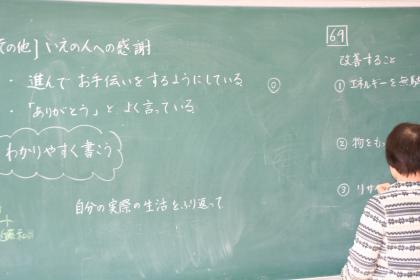 の他] いえの人への感謝
・進んで お手伝いをするようにしている
・「ありがとう」と よく言っている
わかりやすく書こう
自分の実際の生活をふり返って
69
改善すること
① エネルギーを無
② 物をも
③ リサ